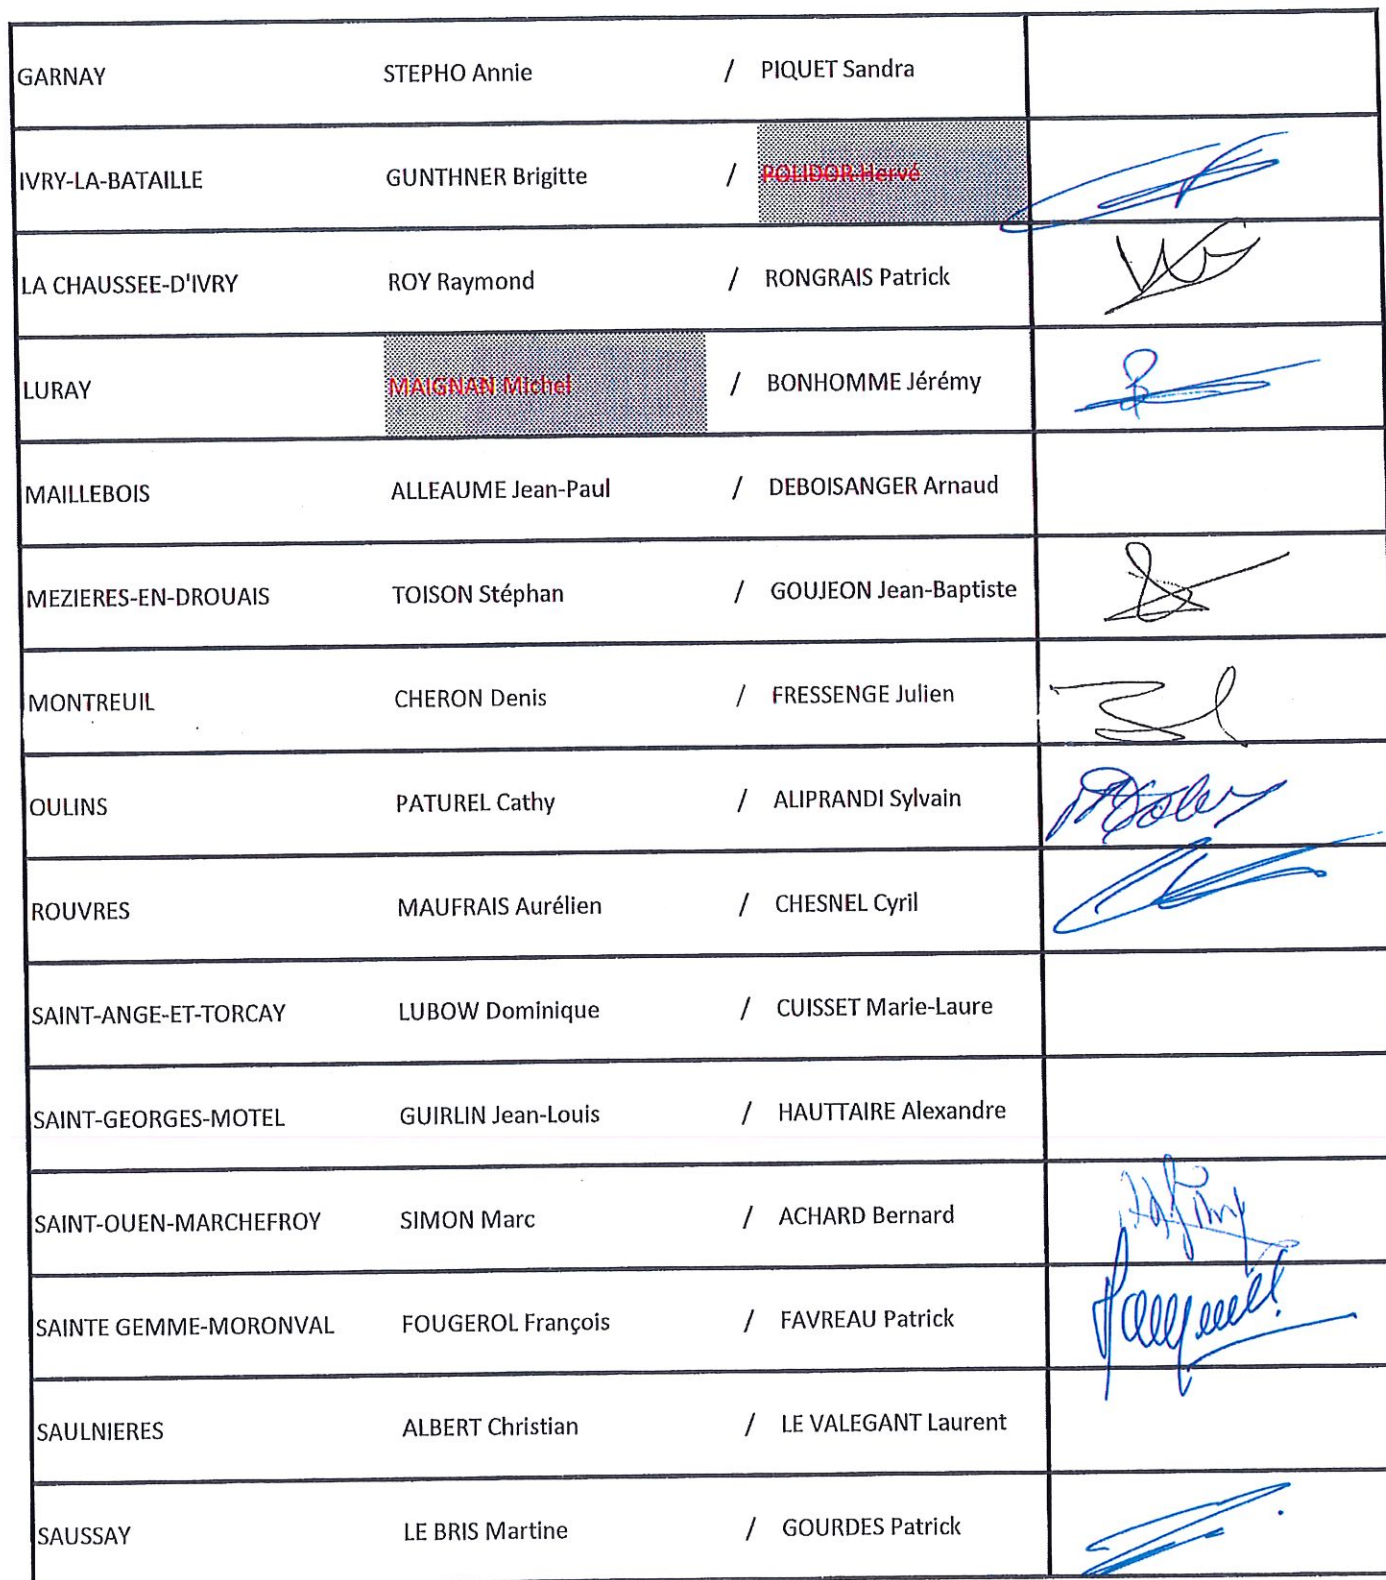 GARNAY STEPHO Annie / PIQUET Sandra
IVRY-LA-BATAILLE GUNTHNER Brigitte / POLIDOR Hervé
LA CHAUSSEE-D'IVRY ROY Raymond / RONGRAIS Patrick
LURAY MAIGNAN Michel / BONHOMME Jérémy
MAILLEBOIS ALLEAUME Jean-Paul / DEBOISANGER Arnaud
MEZIERES-EN-DROUAIS TOISON Stéphan / GOUJEON Jean-Baptiste
MONTREUIL CHERON Denis / FRESSENGE Julien
OULINS PATUREL Cathy / ALIPRANDI Sylvain
ROUVRES MAUFRAIS Aurélien / CHESNEL Cyril
SAINT-ANGE-ET-TORCAY LUBOW Dominique / CUISSET Marie-Laure
SAINT-GEORGES-MOTEL GUIRLIN Jean-Louis / HAUTTAIRE Alexandre
SAINT-OUEN-MARCHEFROY SIMON Marc / ACHARD Bernard
SAINTE GEMME-MORONVAL FOUGEROL François / FAVREAU Patrick
SAULNIERES ALBERT Christian / LE VALEGANT Laurent
SAUSSAY LE BRIS Martine / GOURDES Patrick